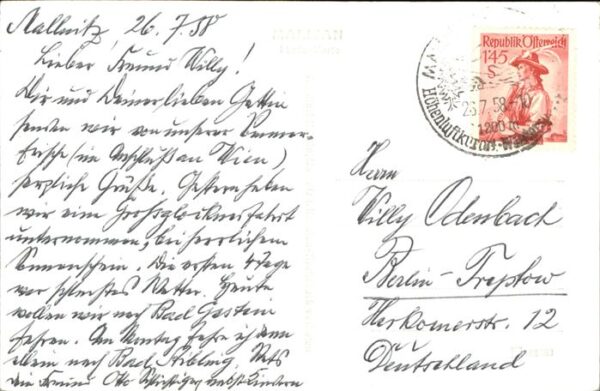 Mallnitz 26.7.58
Lieber Freund Willy!
Dir und Deiner lieben Gattin
senden wir von unserer Sommer-
frische (im Anschluß an Wien)
herzliche Grüße. Gestern haben
wir eine Großglocknerfahrt
unternommen, bei herrlichem
Sonnenschein. Die ersten 4 Tage
war schlechtes Wetter. Heute
wollen wir nach Bad Gastein
fahren. Am Montag fahre ich dann
allein nach Bad Aibling,
die Freund Otto
Republik Österreich
1.45
S
26.7.58-10
1200 m
Höhenluftkurort
Herrn
Willy Odenbach
Berlin-Treptow
Herkomerstr. 12
Deutschland